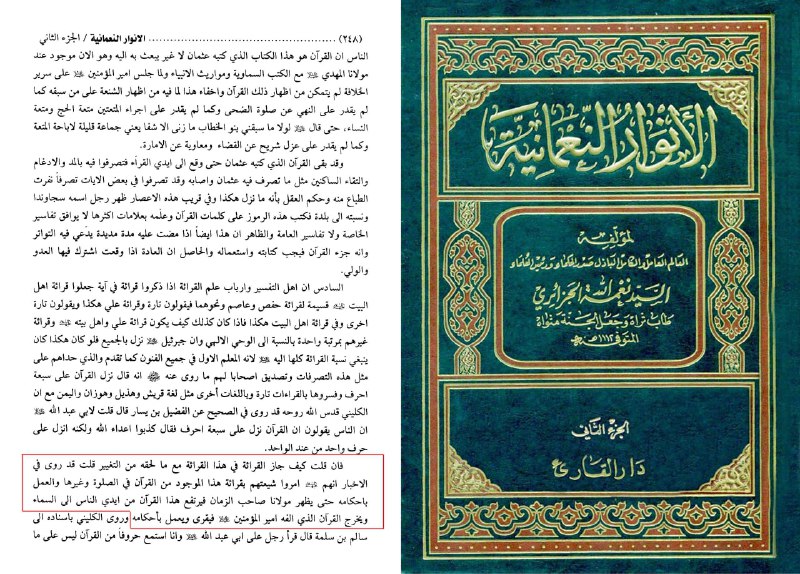 الأنوار النعمانية
لمؤلفه
العالم العامل والكامل الباذل صدر الحكماء ورئيس العلماء
السيد نعمة الله الجزائري
طاب ثراه وجعل الجنة مثواه
المتوفى ١١١٢ هـ
الجزء الثاني
دار القارئ
(٢٤٨) ........ الانوار النعمانية / الجزء الثاني
الناس ان القرآن هو هذا الكتاب الذي كتبه عثمان لا غير يبعث به اليه وهو الان موجود عند
مولانا المهدي ﷺ مع الكتب السماوية ومواريث الانبياء ولما جلس امير المؤمنين ﷺ على سرير
الخلافة لم يتمكن من اظهار ذلك القرآن واخفاء هذا لما فيه من اظهار الشنعة على من سبقه كما
لم يقدر على النهي عن صلوة الضحى وكما لم يقدر على اجراء المتعتين متعة الحج ومتعة
النساء، حتى قال ﷺ لولا ما سبقني بنو الخطاب ما زنى الا شفا يعني جماعة قليلة لاباحة المتعة
وكما لم يقدر على عزل شريح عن القضاء ومعاوية عن الامارة.
وقد بقى القرآن الذي كتبه عثمان حتى وقع الى ايدي القراء فتصرفوا فيه بالمد والادغام
والتقاء الساكنين مثل ما تصرف فيه عثمان واصابه وقد تصرفوا في بعض الايات تصرفاً نفرت
الطباع منه وحكم العقل بأنه ما نزل هكذا وفي قريب هذه الاعصار ظهر رجل اسمه سجاوندا
ونسبته الى بلدة فكتب هذه الرموز على كلمات القرآن وعلمه بعلامات اكثرها لا يوافق تفاسير
الخاصة ولا تفاسير العامة والظاهر ان هذا ايضاً اذا مضت عليه مدة مديدة يدّعي فيه التواتر
وانه جزء القرآن فيجب كتابته واستعماله والحاصل ان العادة اذا وقعت اشترك فيها العدو
والولي.
السادس ان اهل التفسير وارباب علم القرائة اذا ذكروا قرائة في آية جعلوا قرائة اهل
البيت ﷺ قسيمة لقرائة حفص وعاصم ونحوهما فيقولون تارة وقرائة علي هكذا ويقولون تارة
اخرى وفي قرائة اهل البيت ﷺ هكذا فاذا كان كذلك كيف يكون قرائة علي واهل بيته ﷺ وقرائة
غيرهم بمرتبة واحدة بالنسبة الى الوحي الالهي وان جبرئيل ﷺ نزل بالجميع فلو كان هكذا كان
ينبغي نسبة القرائة كلها اليه ﷺ لانه المعلم الاول في جميع الفنون كما تقدم والذي حداهم على
مثل هذه التصرفات وتصديق اصحابنا لهم ما روى عنه ﷺ انه قال نزل القرآن على سبعة
احرف وفسروها بالقراءات تارة وباللغات أخرى مثل لغة قريش وهذيل وهوزان واليمن مع ان
الكليني قدس الله روحه قد روى في الصحيح عن الفضيل بن يسار قال قلت لابي عبد الله ﷺ
ان الناس يقولون ان القرآن نزل على سبعة احرف فقال كذبوا اعداء الله ولكنه انزل على
حرف واحد من عند الواحد.
فان قلت كيف جاز القرائة في هذا القرائة مع ما لحقه من التغيير قلت قد روى في
الاخبار انهم ﷺ امروا شيعتهم بقرائة هذا الموجود من القرآن في الصلوة وغيرها والعمل
باحكامه حتى يظهر مولانا صاحب الزمان فيرتفع هذا القرآن من ايدي الناس الى السماء
ويخرج القرآن الذي الفه امير المؤمنين ﷺ فيقرى ويعمل بأحكامه وروى الكليني باسناده الى
سالم بن سلمة قال قرأ رجل على ابي عبد الله ﷺ وانا استمع حروفا من القرآن ليس على ما